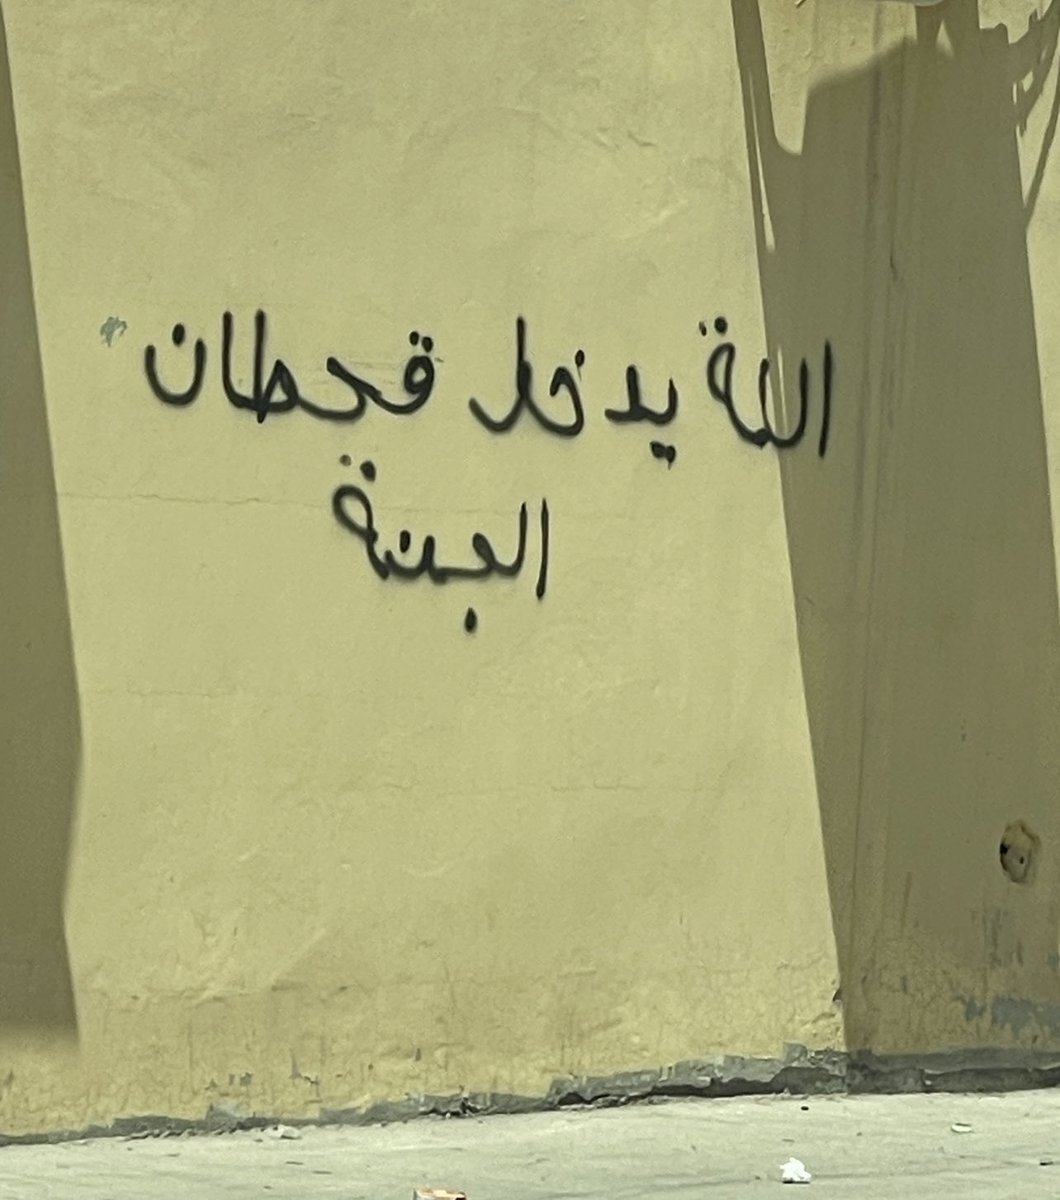 اللة يدخل قحطان
الجنة